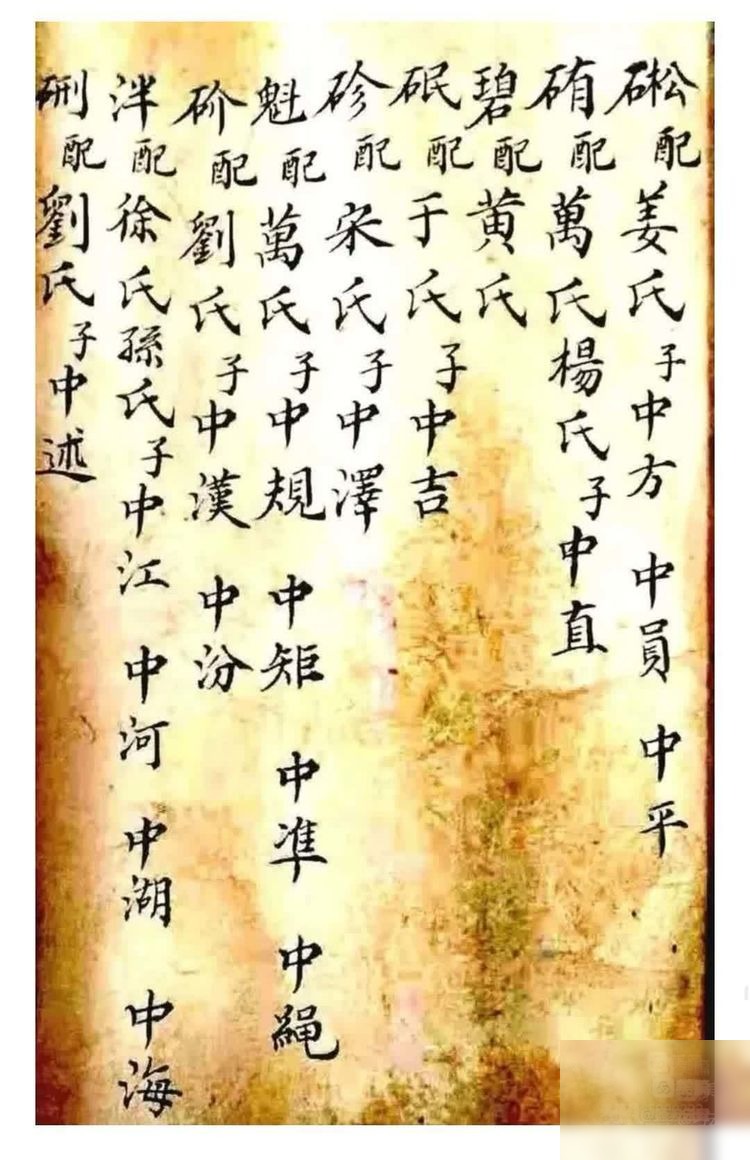 硹配姜氏子中方 中員 中平
硧配萬氏楊氏子中直
碧配黃氏
砇配于氏子中吉
䂦配宋氏子中澤
魁配萬氏子中規 中矩 中準 中繩
砎配劉氏子中漢 中汾
泮配徐氏孫氏子中江 中河 中湖 中海
配劉氏子中述